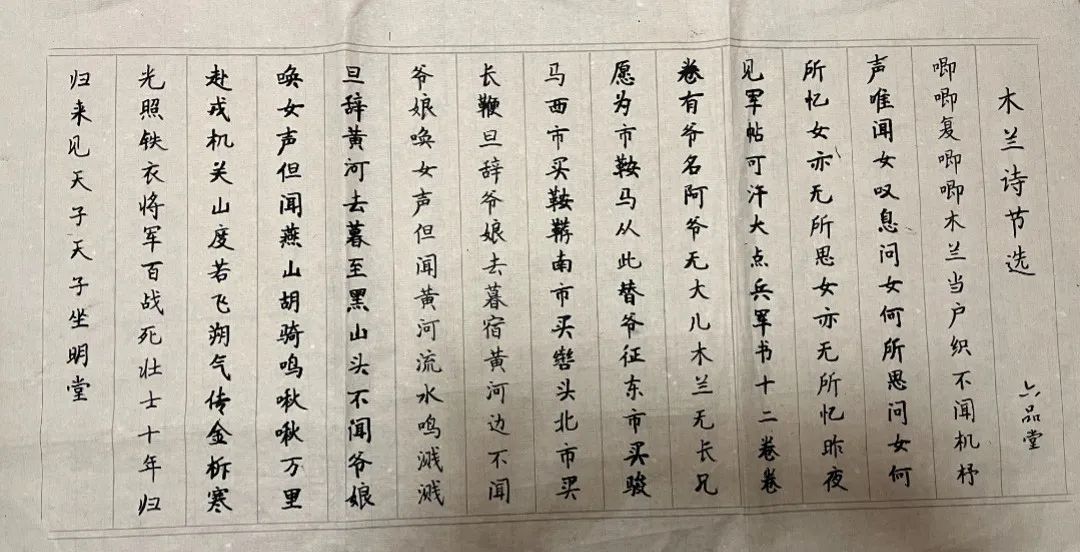 木兰诗节选
六品堂
唧唧复唧唧木兰当户织不闻机杼
声唯闻女叹息问女何所思问女何
所忆女亦无所思女亦无所忆昨夜
见军帖可汗大点兵军书十二卷卷
卷有爷名阿爷无大儿木兰无长兄
愿为市鞍马从此替爷征东市买骏
马西市买鞍鞯南市买辔头北市买
长鞭旦辞爷娘去暮宿黄河边不闻
爷娘唤女声但闻黄河流水鸣溅溅
旦辞黄河去暮至黑山头不闻爷娘
唤女声但闻燕山胡骑鸣啾啾万里
赴戎机关山度若飞朔气传金柝寒
光照铁衣将军百战死壮士十年归
归来见天子天子坐明堂